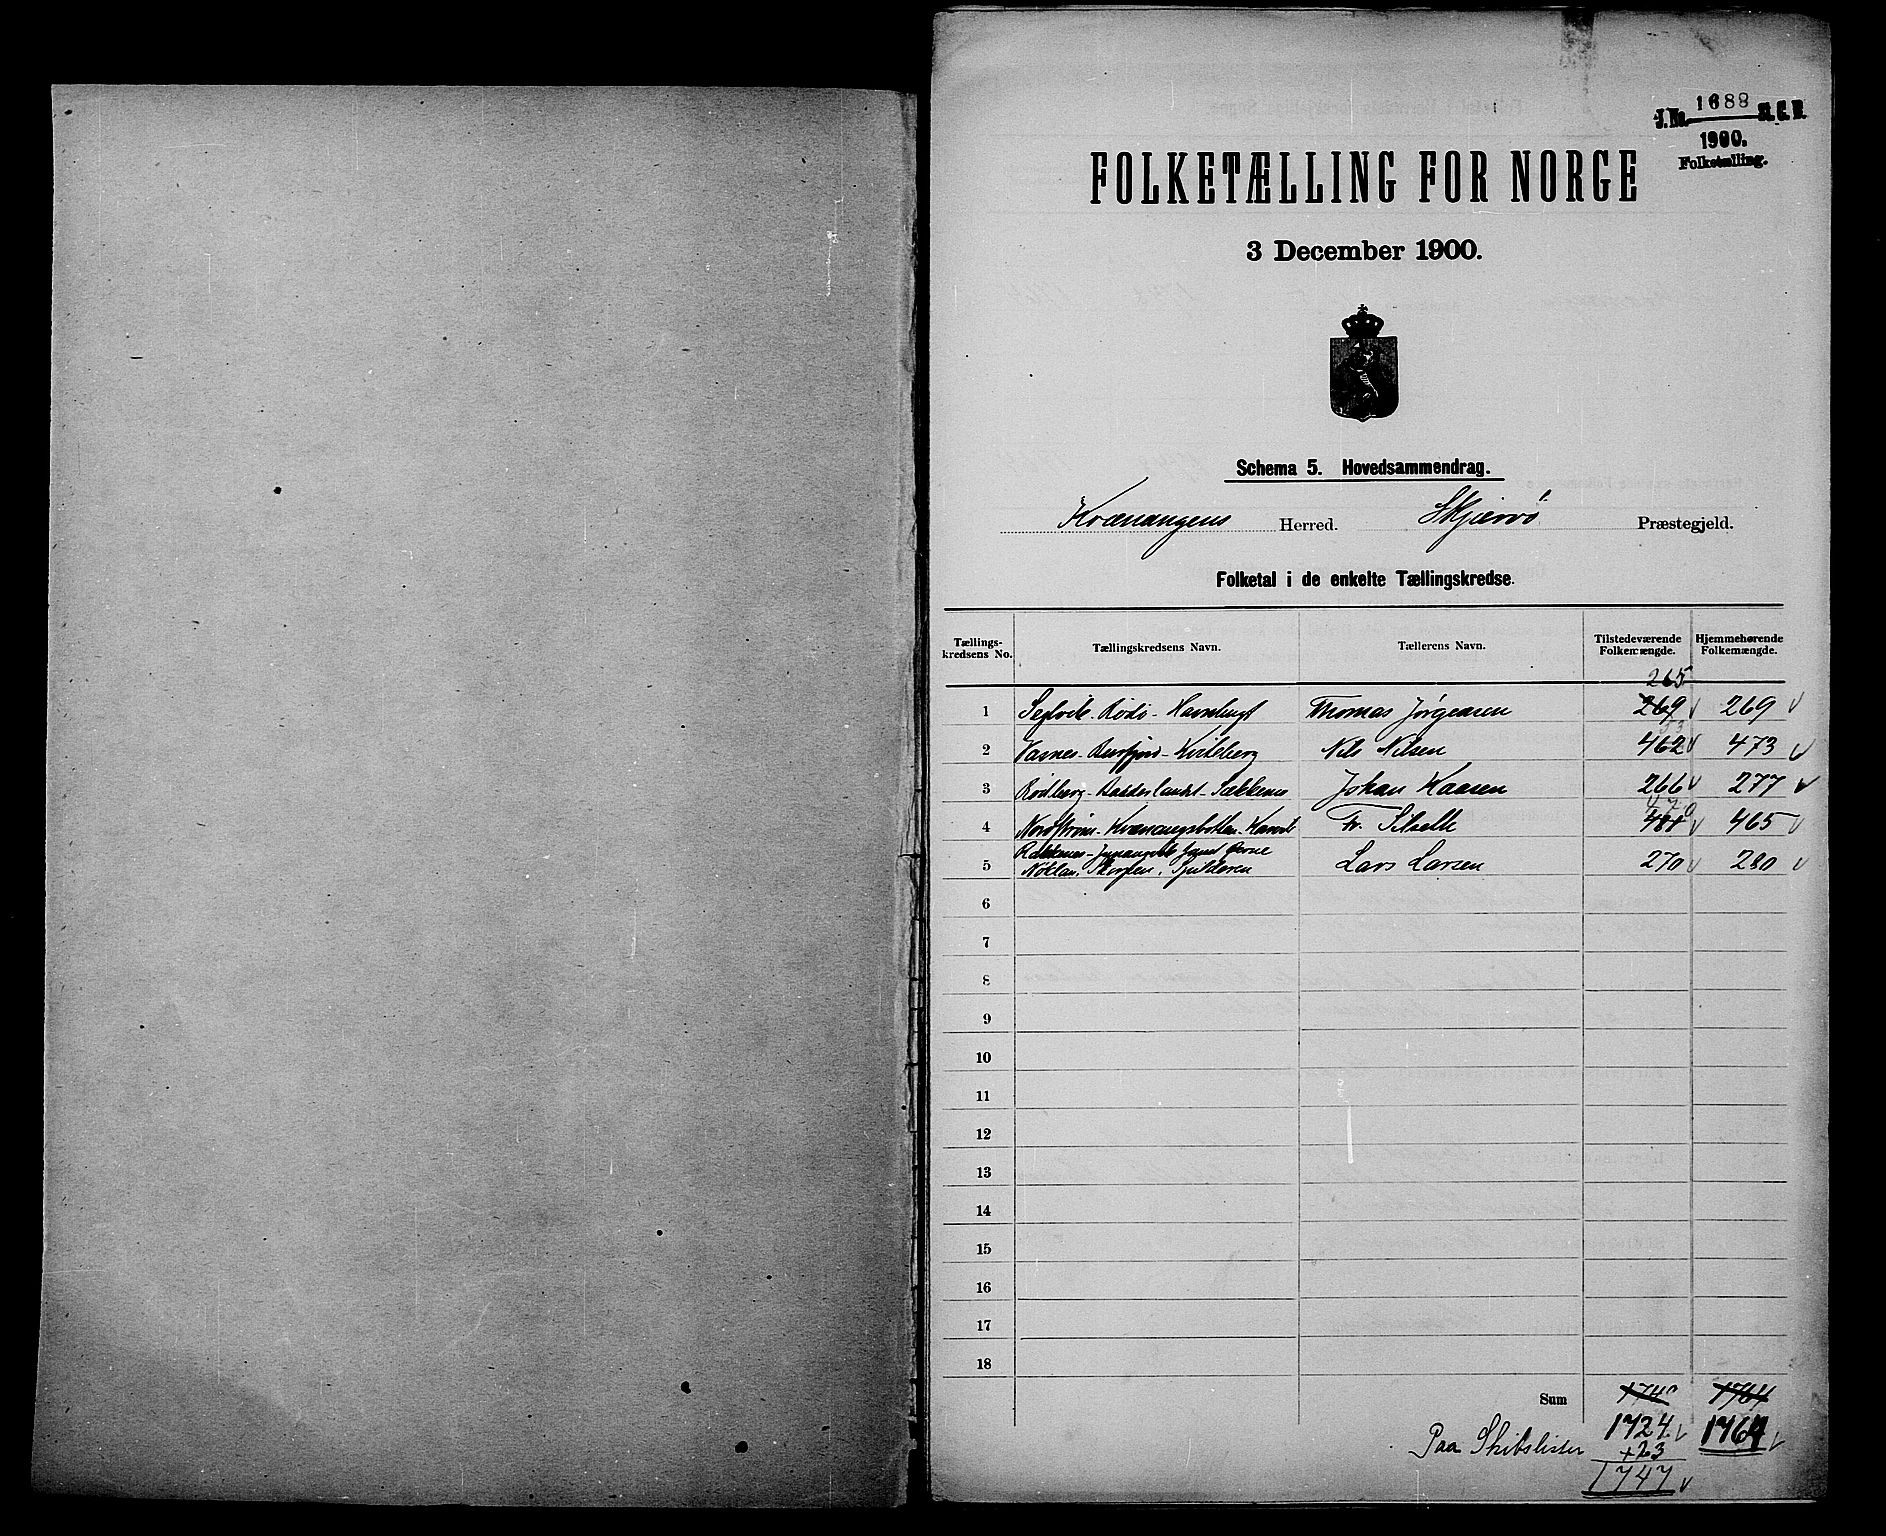 J.No. 1688 St. C. B.
1900.
Folketælling.
FOLKETÆLLING FOR NORGE
3 December 1900.
Schema 5. Hovedsammendrag.
Kvænangens Herred. Skjærvö Præstegjeld.
Folketal i de enkelte Tællingskredse.
Tællings-kredsens No. Tællingskredsens Navn. Tællerens Navn. Tilstedeværende Folkemængde. Hjemmehørende Folkemængde.
265
1 Seglvik - Rödö - Thomas Jörgensen 269 269
2 Vasnes - Burfjord - Kvitberg Nils Nilsen 462 473
3 Rödberg - Badderlandet - Sækkemo Johan Kaasen 266 277
4 Nordströmn - Kvænangsbotten - Fr. 465
5 Nöklan, Skorpen, Spilderen Lars Larsen 270 280
6
7
8
9
10
11
12
13
14
15
16
17
18
Sum 1740 1764
1724 1764
Paa Skibslister +23
1747